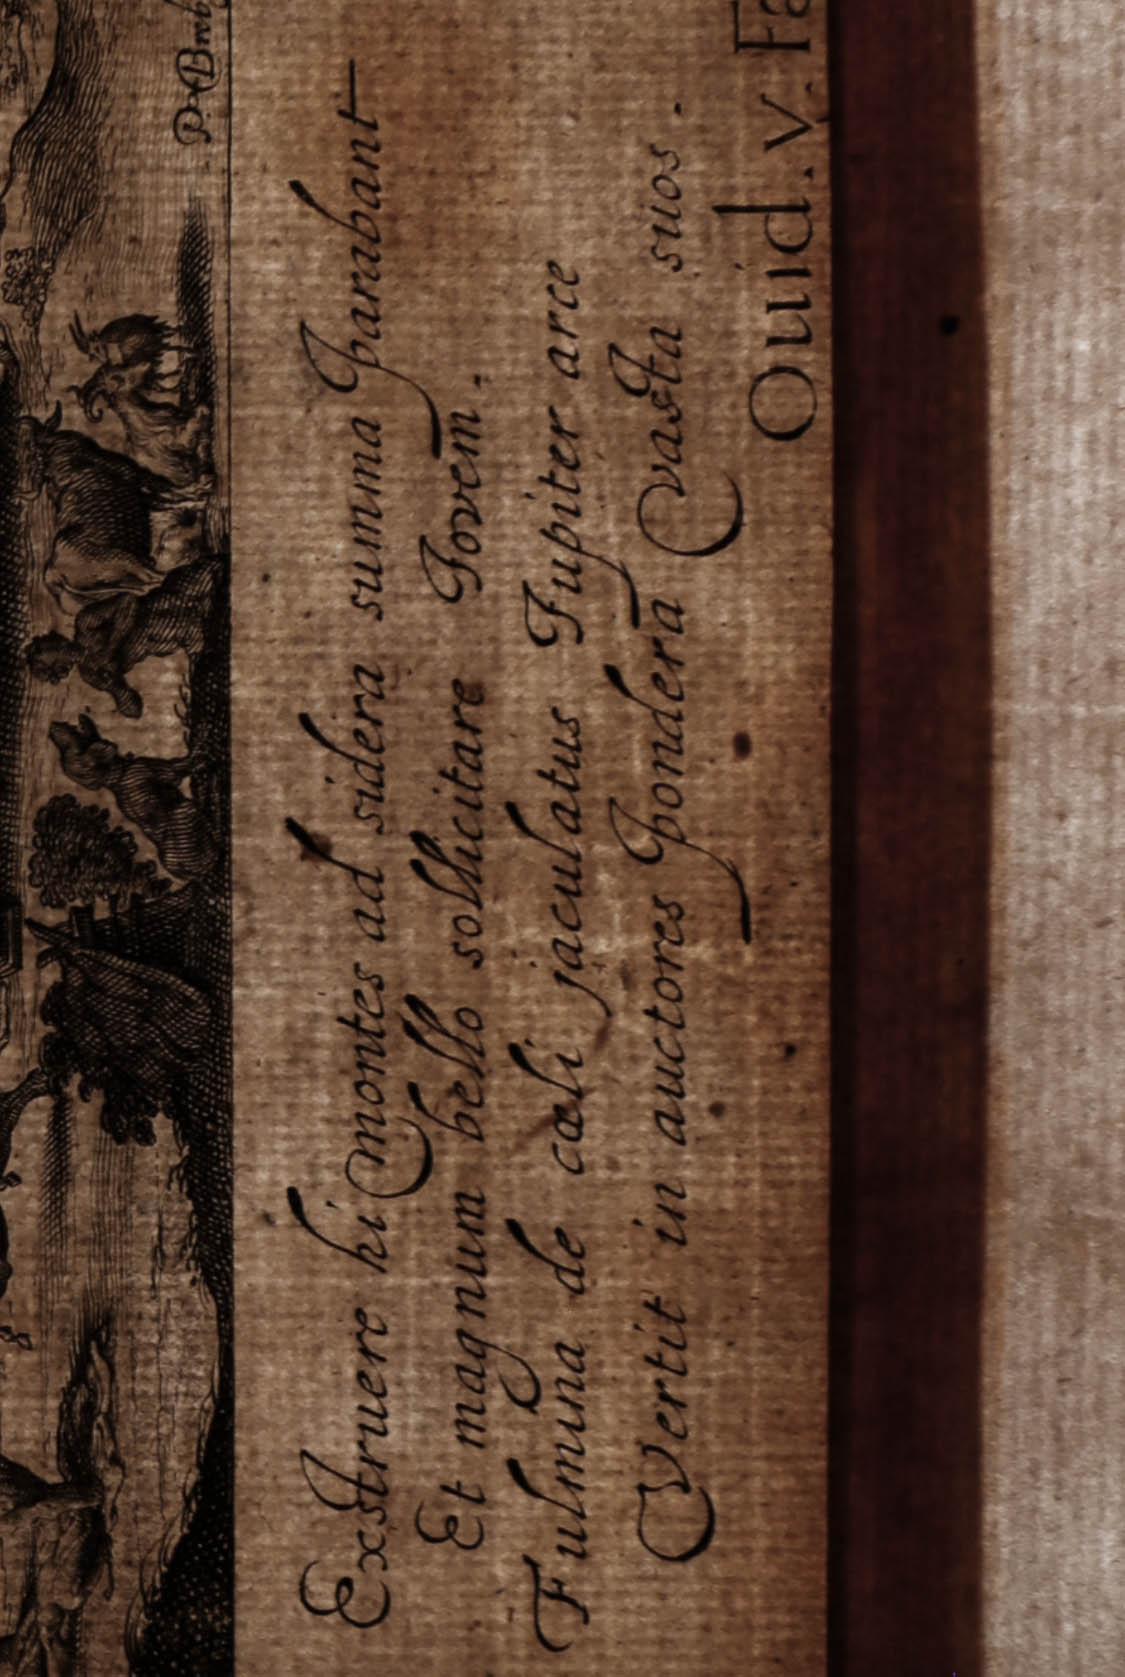 Exstruere hi montes ad sidera summa parabant
Et magnum bello sollicitare Iovem.
Fulmina de cœli jaculatus Iupiter arce
Vertit in auctores pondera vasta suos.
Ouid. V. Fa